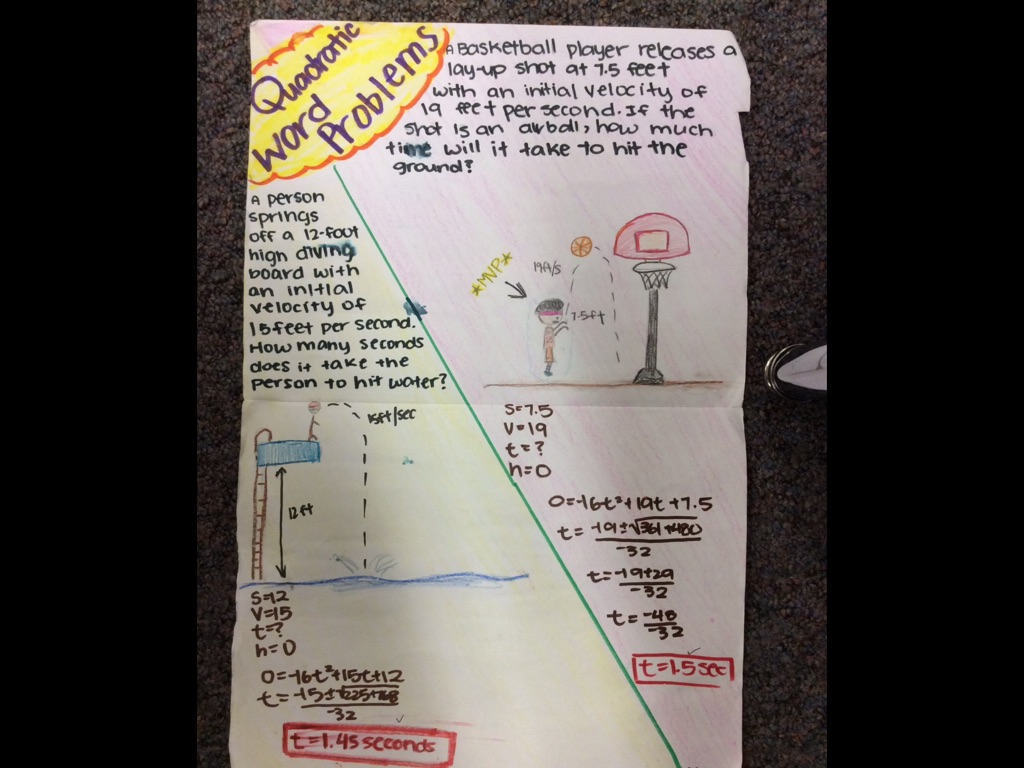 Quadratic
Word
Problems
A Basketball player releases a
lay-up shot at 7.5 feet
with an initial velocity of
19 feet per second. If the
shot is an airball, how much
time will it take to hit the
ground?
A person
springs
off a 12-foot
high diving
board with
an initial
velocity of
15 feet per second.
How many seconds
does it take the
person to hit water?
*MVP*
19ft/s
7.5ft
15ft/sec
12ft
S=12
V=15
t=?
h=0
0=-16t²+15t+12
t=-15±√225+768
-32
t=1.45 seconds
S=7.5
V=19
t=?
h=0
0=-16t²+19t+7.5
t=-19±√361+480
-32
t=-19±29
-32
t=-48
-32
t=1.5 sec